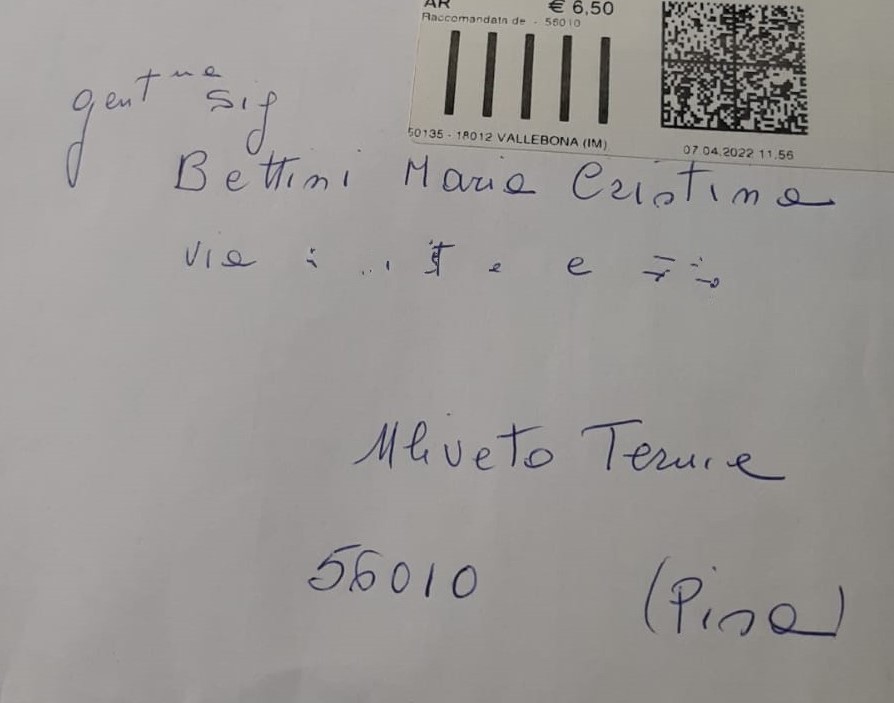 AR € 6,50
Raccomandata de - 56010
50135 - 18012 VALLEBONA (IM)
07.04.2022 11.56
gent ma Sig
Bettini Maria Cristina
via
Uliveto Terme
56010 (Pisa)